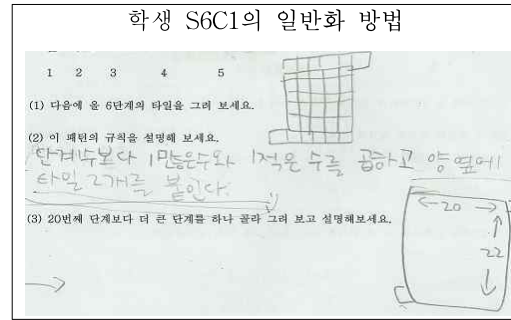 학생 S6C1의 일반화 방법
1 2 3 4 5
(1) 다음에 올 6단계의 타일을 그려 보세요.
(2) 이 패턴의 규칙을 설명해 보세요.
단계수보다 1많은수와 1적은 수를 곱하고 양옆에
타일 2개를 붙인다.
(3) 20번째 단계보다 더 큰 단계를 하나 골라 그려 보고 설명해보세요.
20
22